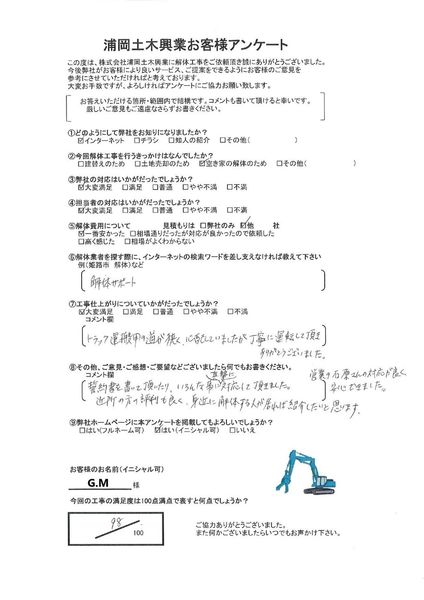 浦岡土木興業お客様アンケート
この度は、株式会社浦岡土木興業に解体工事をご依頼頂き誠にありがとうございました。
今後弊社がお客様により良いサービス、ご提案をできるようにお客様のご意見を
参考にさせていただければと考えております。
大変お手数ですが、よろしければアンケートにご協力お願い致します。
お答えいただける箇所・範囲内で結構です。コメントも書いて頂けると幸いです。
厳しいご意見もご遠慮なさらずお書きください。
①どのようにして弊社をお知りになりましたか？
☑インターネット □チラシ □知人の紹介 □その他( )
②今回解体工事を行うきっかけはなんでしたか？
□建替えのため □土地売却のため ☑空き家の解体のため □その他( )
③弊社の対応はいかがだったでしょうか？
☑大変満足 □満足 □普通 □やや不満 □不満
④担当者の対応はいかがだったでしょうか？
☑大変満足 □満足 □普通 □やや不満 □不満
⑤解体費用について 見積もりは □弊社のみ ☑他 社
☑一番安かった □相場通りだったが対応が良かったので依頼した
□高く感じた □相場がよくわからない
⑥解体業者を探す際に、インターネットの検索ワードを差し支えなければ教えて下さい
例(姫路市 解体)など
解体サポート
⑦工事仕上がりについていかがだったでしょうか？
☑大変満足 □満足 □普通 □やや不満 □不満
コメント欄
トラック運搬用の道が狭く、心配していましたが丁寧に運転して頂き
ありがとうございました。
⑧その他、ご意見・ご感想・ご要望などございましたら何でもお書きください。
コメント欄
営業の石原さんの対応が良く
安心できました。
誓約書を書いて頂いたり、いろんな事に真摯に対応して頂きました。
近所の方の評判も良く、身近に解体する人が居れば紹介したいと思います。
⑨弊社ホームページに本アンケートを掲載してもよろしいでしょうか？
□はい(フルネーム可) ☑はい(イニシャル可) □いいえ
お客様のお名前(イニシャル可)
G.M 様
今回の工事の満足度は100点満点で表すと何点でしょうか？
98
100
ご協力ありがとうございました。
また何かございましたらいつでもお声掛け下さい。